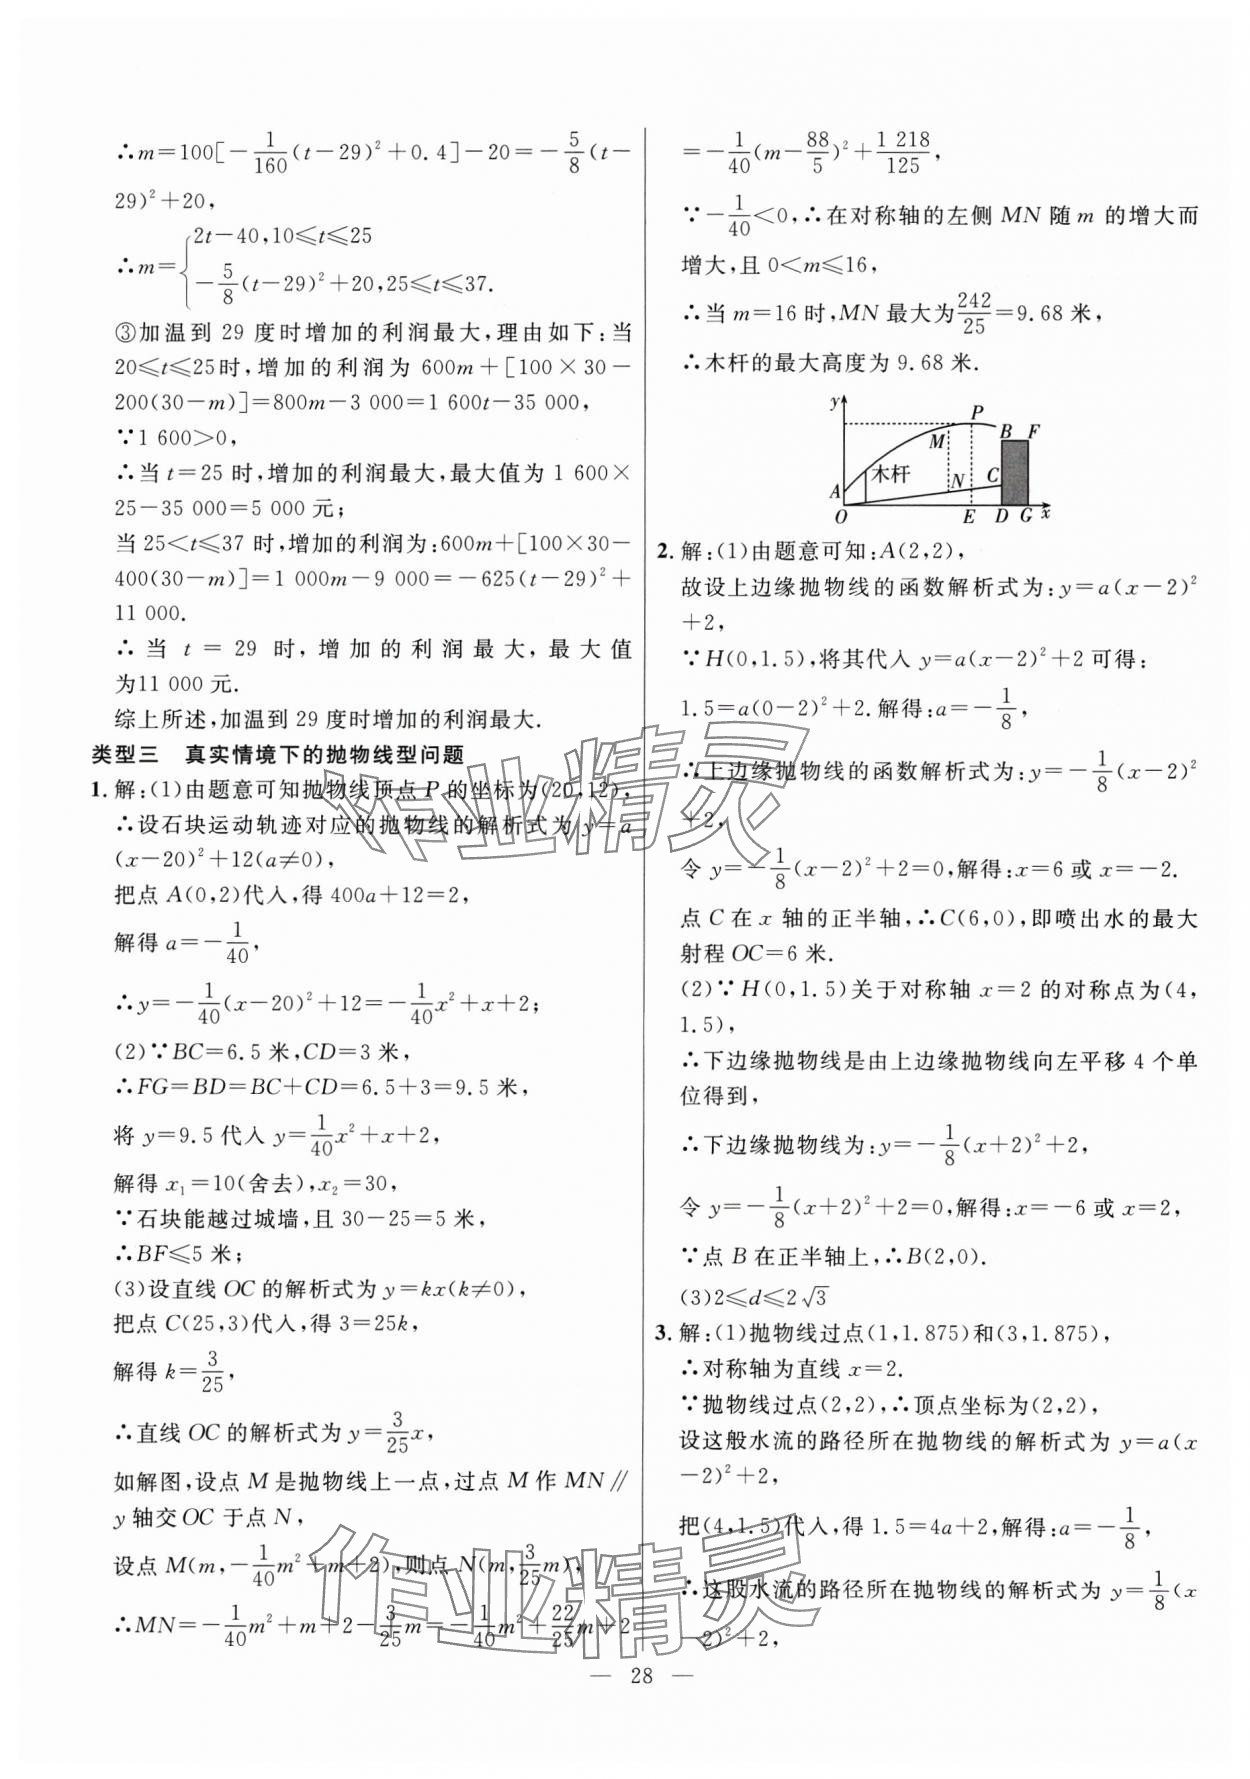 ∴m=100[-1/160(t-29)²+0.4]-20=-5/8(t-
29)²+20,
∴m={2t-40,10≤t≤25
-5/8(t-29)²+20,25≤t≤37.
③加温到 29 度时增加的利润最大,理由如下:当
20≤t≤25时,增加的利润为 600m+[100×30-
200(30-m)]=800m-3 000=1 600t-35 000,
∵1 600>0,
∴当 t=25 时,增加的利润最大,最大值为 1 600×
25-35 000=5 000 元;
当 25<t≤37 时,增加的利润为:600m+[100×30-
400(30-m)]=1 000m-9 000=-625(t-29)²+
11 000.
∴当 t=29 时,增加的利润最大,最大值
为11 000元.
综上所述,加温到 29 度时增加的利润最大.
类型三 真实情境下的抛物线型问题
1. 解:(1)由题意可知抛物线顶点 P 的坐标为(20,12),
∴设石块运动轨迹对应的抛物线的解析式为 y=a
(x-20)²+12(a≠0),
把点 A(0,2)代入,得 400a+12=2,
解得 a=-1/40,
∴y=-1/40(x-20)²+12=-1/40x²+x+2;
(2)∵BC=6.5 米,CD=3 米,
∴FG=BD=BC+CD=6.5+3=9.5 米,
将 y=9.5 代入 y=1/40x²+x+2,
解得 x₁=10(舍去),x₂=30,
∵石块能越过城墙,且 30-25=5 米,
∴BF≤5 米;
(3)设直线 OC 的解析式为 y=kx(k≠0),
把点 C(25,3)代入,得 3=25k,
解得 k=3/25,
∴直线 OC 的解析式为 y=3/25x,
如解图,设点 M 是抛物线上一点,过点 M 作 MN∥
y 轴交 OC 于点 N,
设点 M(m,-1/40m²+m+2),则点 N(m,3/25m),
∴MN=-1/40m²+m+2-3/25m=-1/40m²+22/25m+2
=-1/40(m-88/5)²+1 218/125,
∵-1/40<0,∴在对称轴的左侧 MN 随 m 的增大而
增大,且 0<m≤16,
∴当 m=16 时,MN 最大为242/25=9.68 米,
∴木杆的最大高度为 9.68 米.
y P
B F
M
木杆 N C
A
O E D G x
2. 解:(1)由题意可知:A(2,2),
故设上边缘抛物线的函数解析式为:y=a(x-2)²
+2,
∵H(0,1.5),将其代入 y=a(x-2)²+2 可得:
1.5=a(0-2)²+2.解得:a=-1/8,
∴上边缘抛物线的函数解析式为:y=-1/8(x-2)²
+2,
令 y=-1/8(x-2)²+2=0,解得:x=6 或 x=-2.
点 C 在 x 轴的正半轴,∴C(6,0),即喷出水的最大
射程 OC=6 米.
(2)∵H(0,1.5)关于对称轴 x=2 的对称点为(4,
1.5),
∴下边缘抛物线是由上边缘抛物线向左平移 4 个单
位得到,
∴下边缘抛物线为:y=-1/8(x+2)²+2,
令 y=-1/8(x+2)²+2=0,解得:x=-6 或 x=2,
∵点 B 在正半轴上,∴B(2,0).
(3)2≤d≤2√3
3. 解:(1)抛物线过点(1,1.875)和(3,1.875),
∴对称轴为直线 x=2.
∵抛物线过点(2,2),∴顶点坐标为(2,2),
设这般水流的路径所在抛物线的解析式为 y=a(x
-2)²+2,
把(4,1.5)代入,得 1.5=4a+2,解得:a=-1/8,
∴这股水流的路径所在抛物线的解析式为 y=1/8(x
-2)²+2,
— 28 —
作业精灵
作业精灵